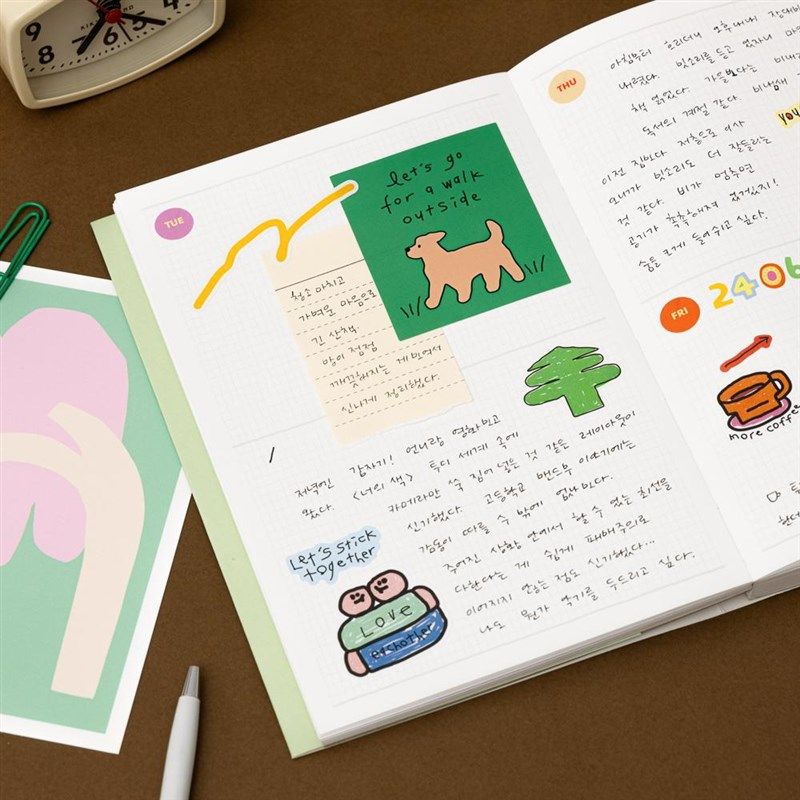 TUE
let's go
for a walk
outside
청소 마치고
가벼운 마음으로
긴 산책
방이 점점
깨끗해지는 게 보여서
신나게 정리했다.
저녁엔 갑자기! 언니랑 영화 보고
왔다. <너의 색> 특히 세계 속에
카메라만 쑥 집어 넣은 것 같은 레이아웃이
신기했다. 고등학교 밴드부 이야기에는
감동이 따를 수 밖에 없나보다.
주어진 상황 안에서 할 수 있는 최선을
다한다는 게 쉽게
이어지지 않는 점도 신기했다...
나도 뭔가 악기를 두드리고 싶다.
Let's stick
together
Love
eachother
THU
아침부터 흐리더니 오후 내내 장대비
내렸다. 빗소리를 듣고 있자니
책 읽었다. 가을보다는 비내
독서의 계절 같다. 비냄새
you
이전 집보다 저층으로 이사
오니가 빗소리도 더 잘들리는
것 같다. 비가 멈추면
공기가 촉촉해져 있겠지!
숨을 크게 들이쉬고 싶다.
FRI
2406
more coffee